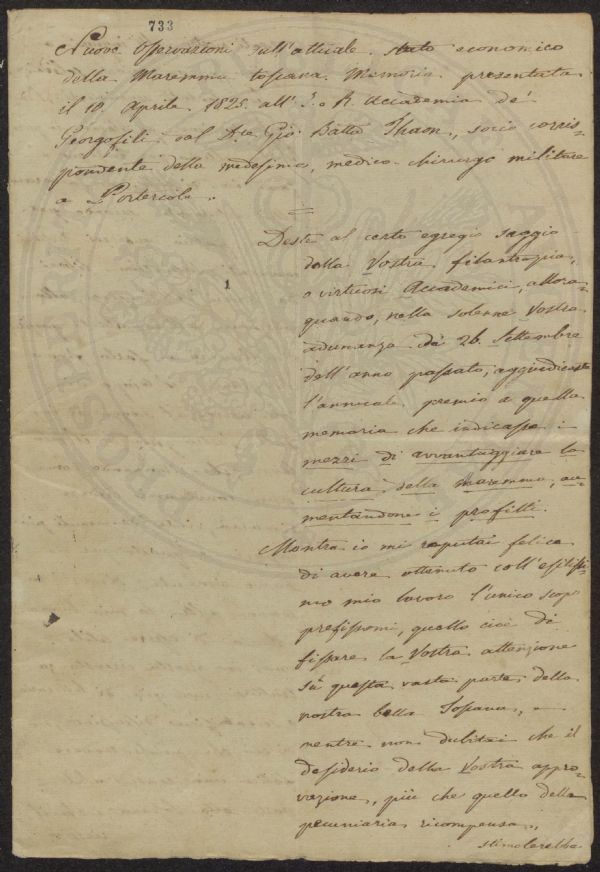 733
Nuove Osservazioni sull'attuale stato economico
della Maremma toscana. Memoria presentata
il 10 Aprile 1825 all'I. e R. Accademia de'
Georgofili dal Dre Gio. Batta Thaon, socio corris-
pondente della medesima, medico-chirurgo militare
a Portercole.
Deste al certo egregio saggio
della Vostra filantropia,
o virtuosi Accademici, allora
quando, nella solenne Vostra
adunanza de' 26 Settembre
dell'anno passato, aggiudicaste
l'annuale premio a quella
memoria che indicasse i
mezzi di avvantaggiare la
cultura della Maremma, au
mentandone i profitti.
Mentre io mi reputai felice
di avere ottenuto coll'esilissi-
mo mio lavoro l'unico scopo
prefissomi, quello cioè di
fissare la Vostra attenzione
su questa vasta parte della
nostra bella Toscana, e
mentre non dubitai che il
desiderio della Vostra appro-
vazione, più che quello della
pecuniaria ricompensa,
stimolerebbe
1